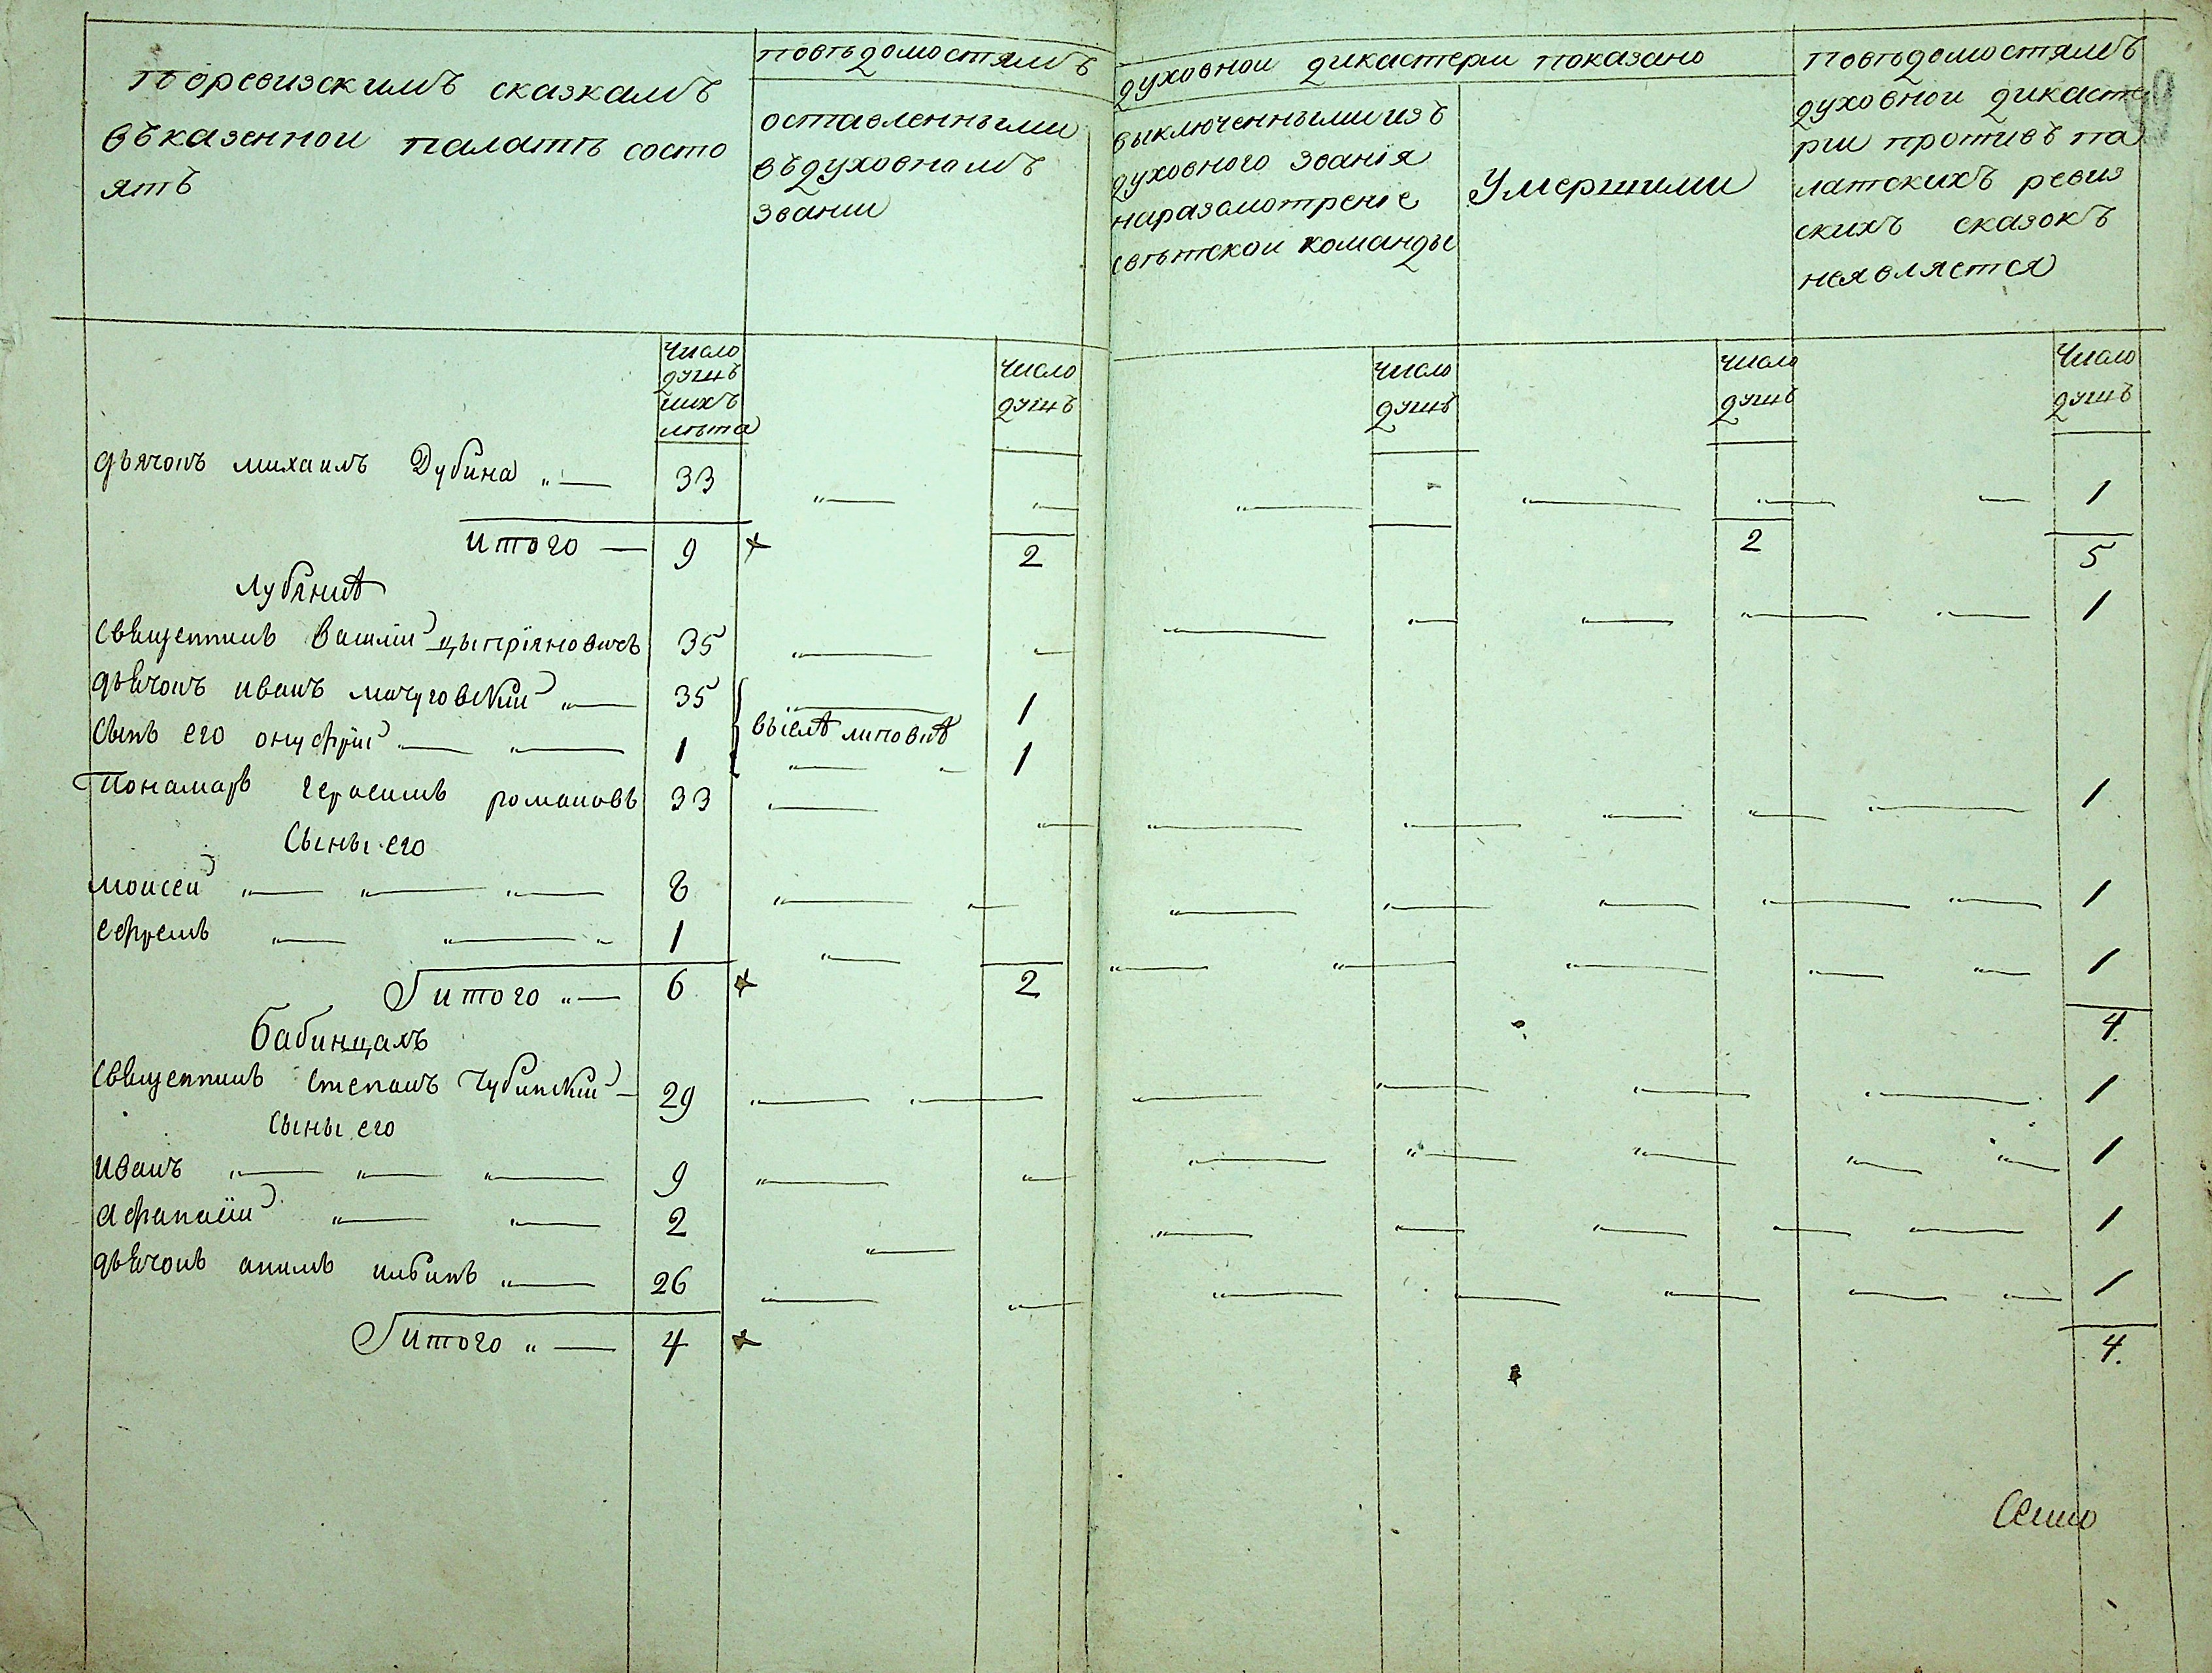 пoревизскимъ сказкамъ
въказеннои палатѣ состо
ятъ
повѣдомостямъ
оставленными
въдуховномъ
звании
духовнои дикастерии показано
выключенными изъ
духовного званія
наразсмотреніе
свѣтскои команды
Умершими
повѣдомостямъ
духовнои дикасте
рии противъ па
латскихъ ревиз
скихъ сказокъ
неявляется
число
душъ
ихъ
лѣта
число
душъ
число
душъ
число
душъ
число
душъ
дьячокъ михаилъ Дубина „— 33 „— „— „— „— „— — 1
итого — 9 + 2 2 5
Лубянкѣ
священникъ Василий цыпріяновичъ 35 1
дьячокъ иванъ мачуговский „— 35 1
вьселѣ липовкѣ
сынъ его онуфрій „— „— 1 1
Пономаръ герасимъ романовъ 33 1
сыны его
моисей „— „— „— 8 1
ефремъ „— „— „ 1 1
итого „— 6 + 2 4.
бабинцахъ
священникъ степанъ Чубинский — 29 1
сыны его
иванъ „— „— „— 9 1
афанасій „— „— 2 1
дьячокъ акимъ ильинъ „— 26 1
итого „— 4 + 4.